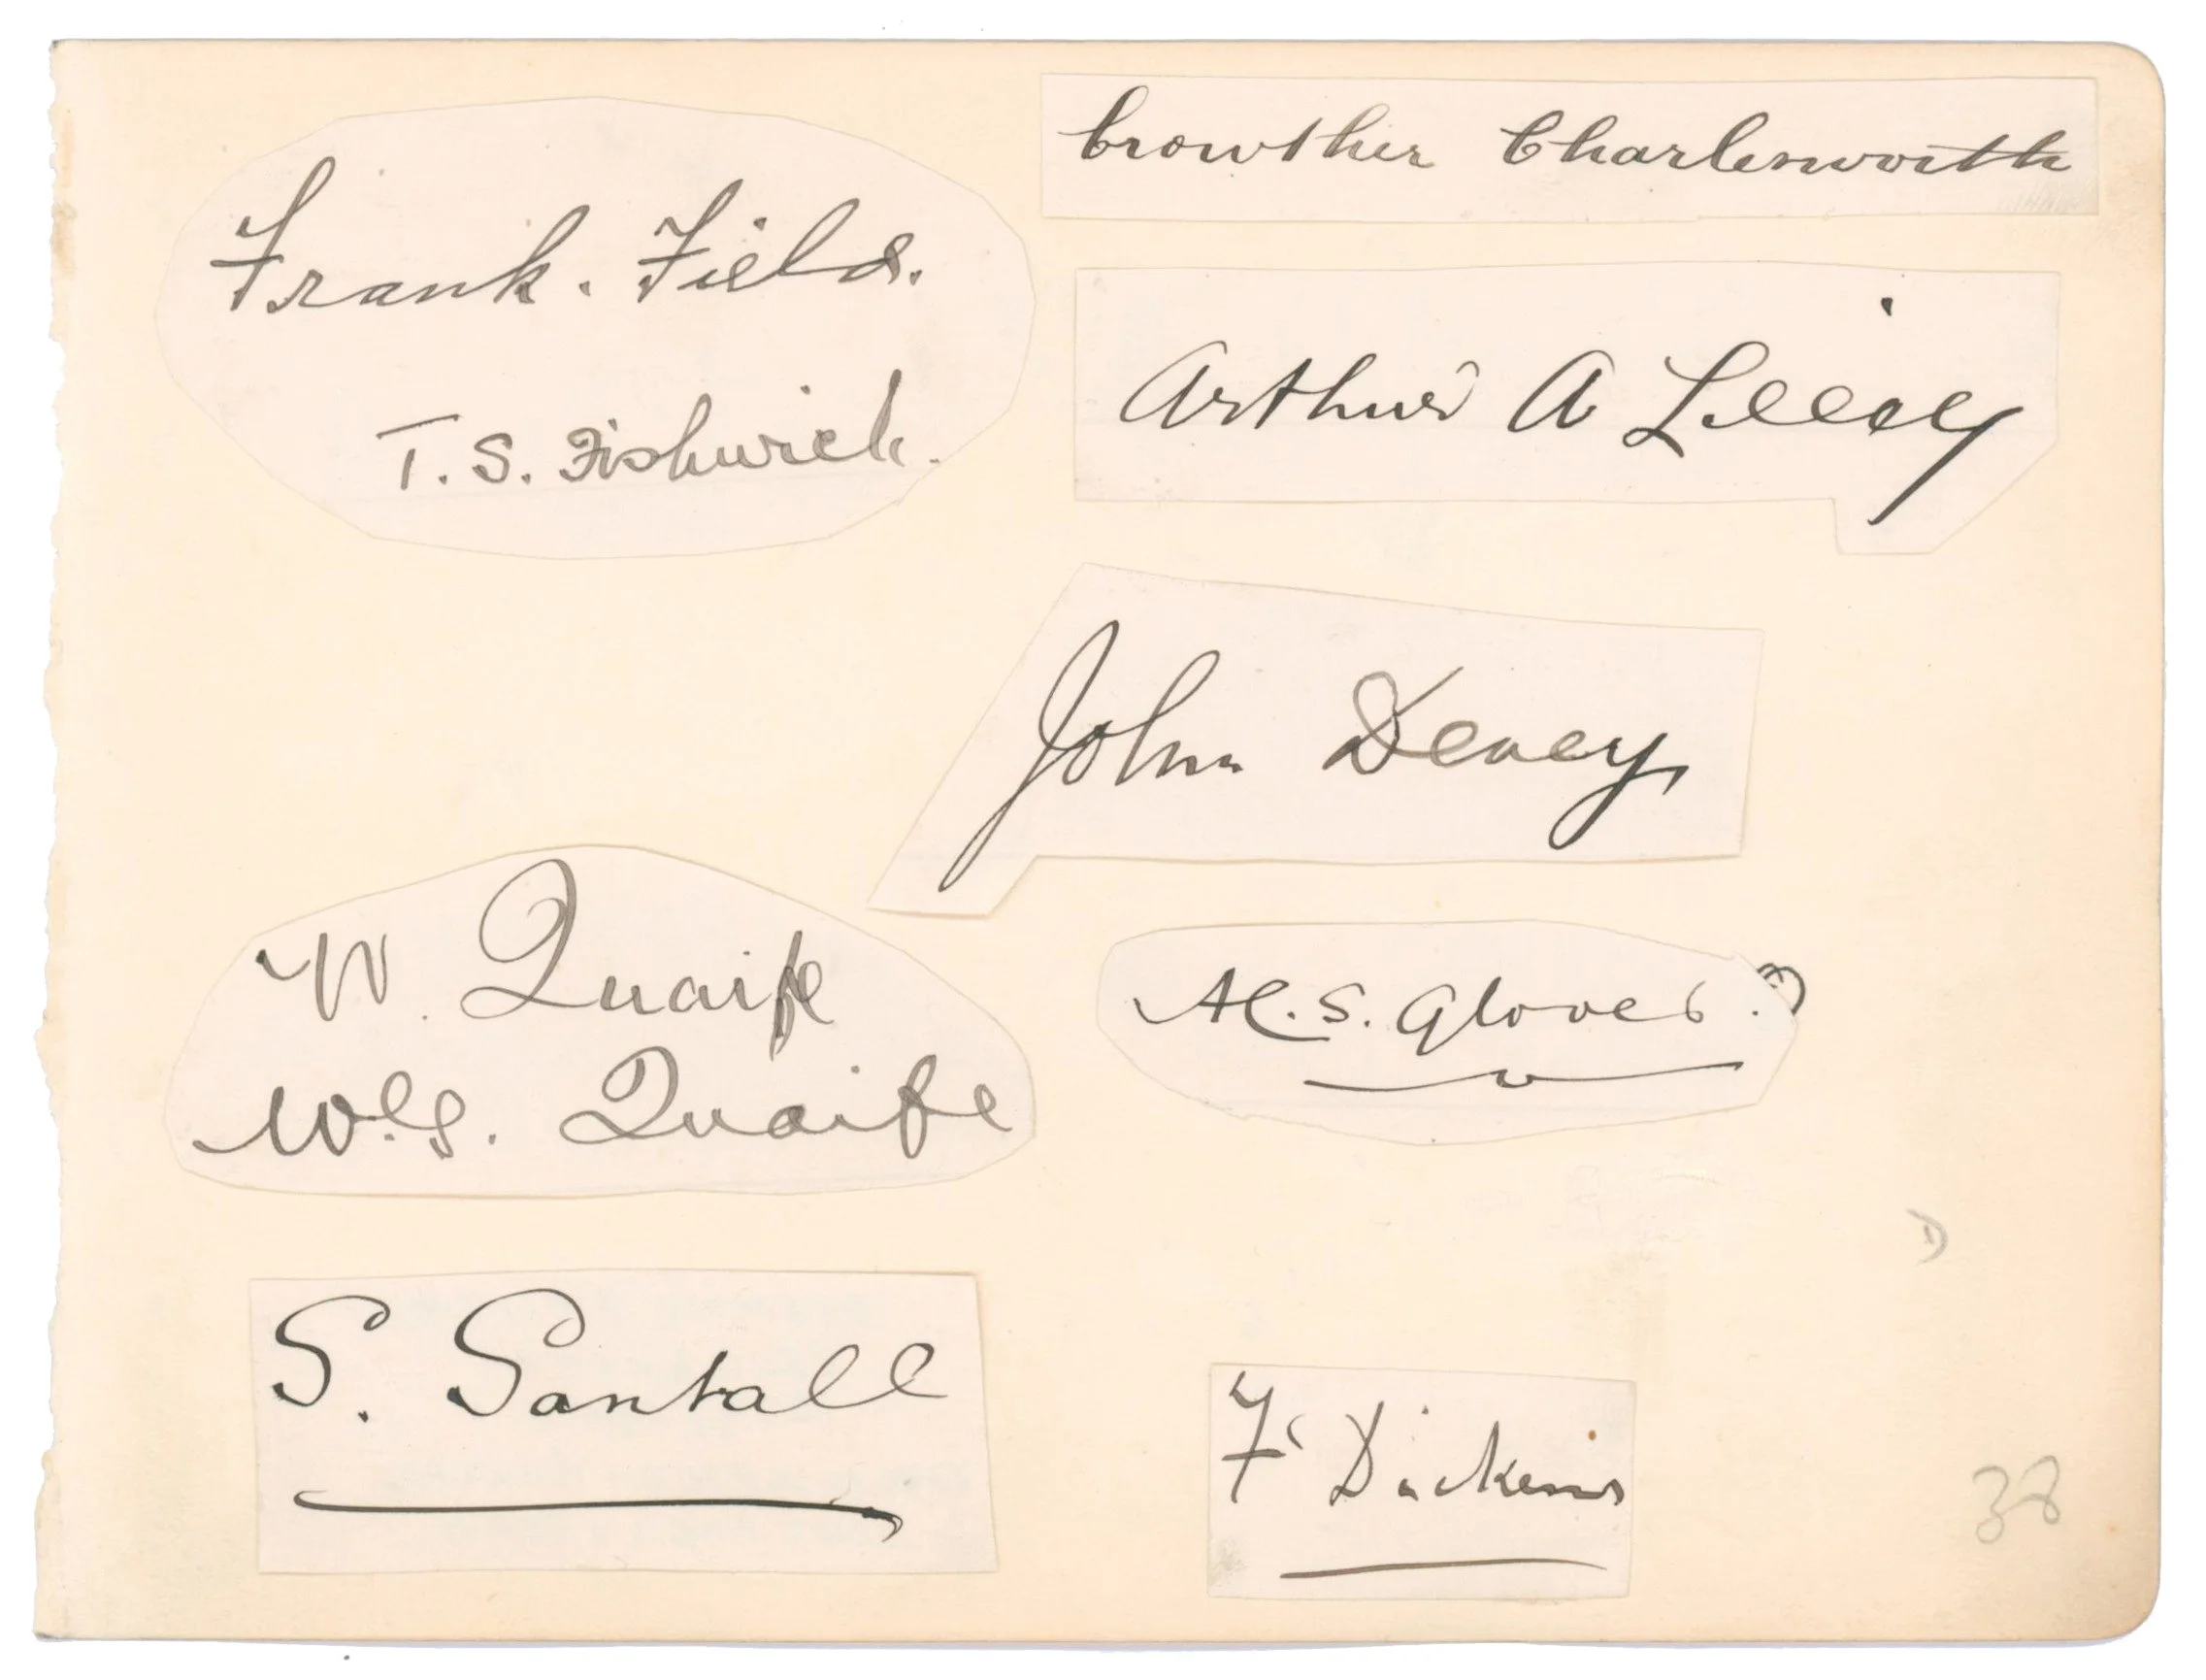 Frank. Field.
T. S. Fishwick.
Crowther Charlesworth
Arthur A Lilley
John Devey
W. Quaife
W. G. Quaife
A. C. S. Glover.
S. Santall
F Dickens
D
38